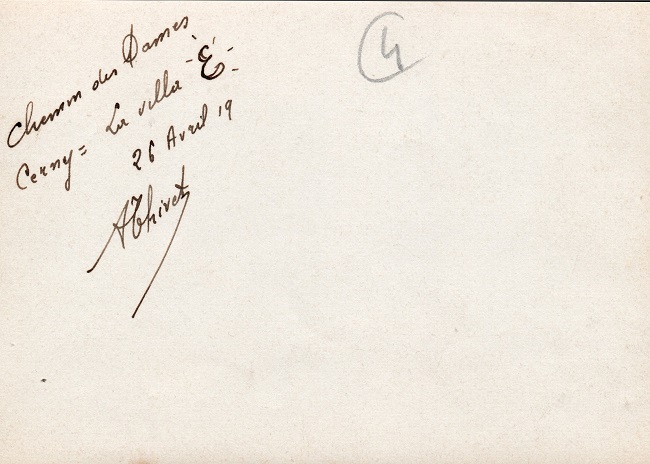 Chemin des Dames
Cerny = La villa - E -
26 Avril 19
AThivet
4